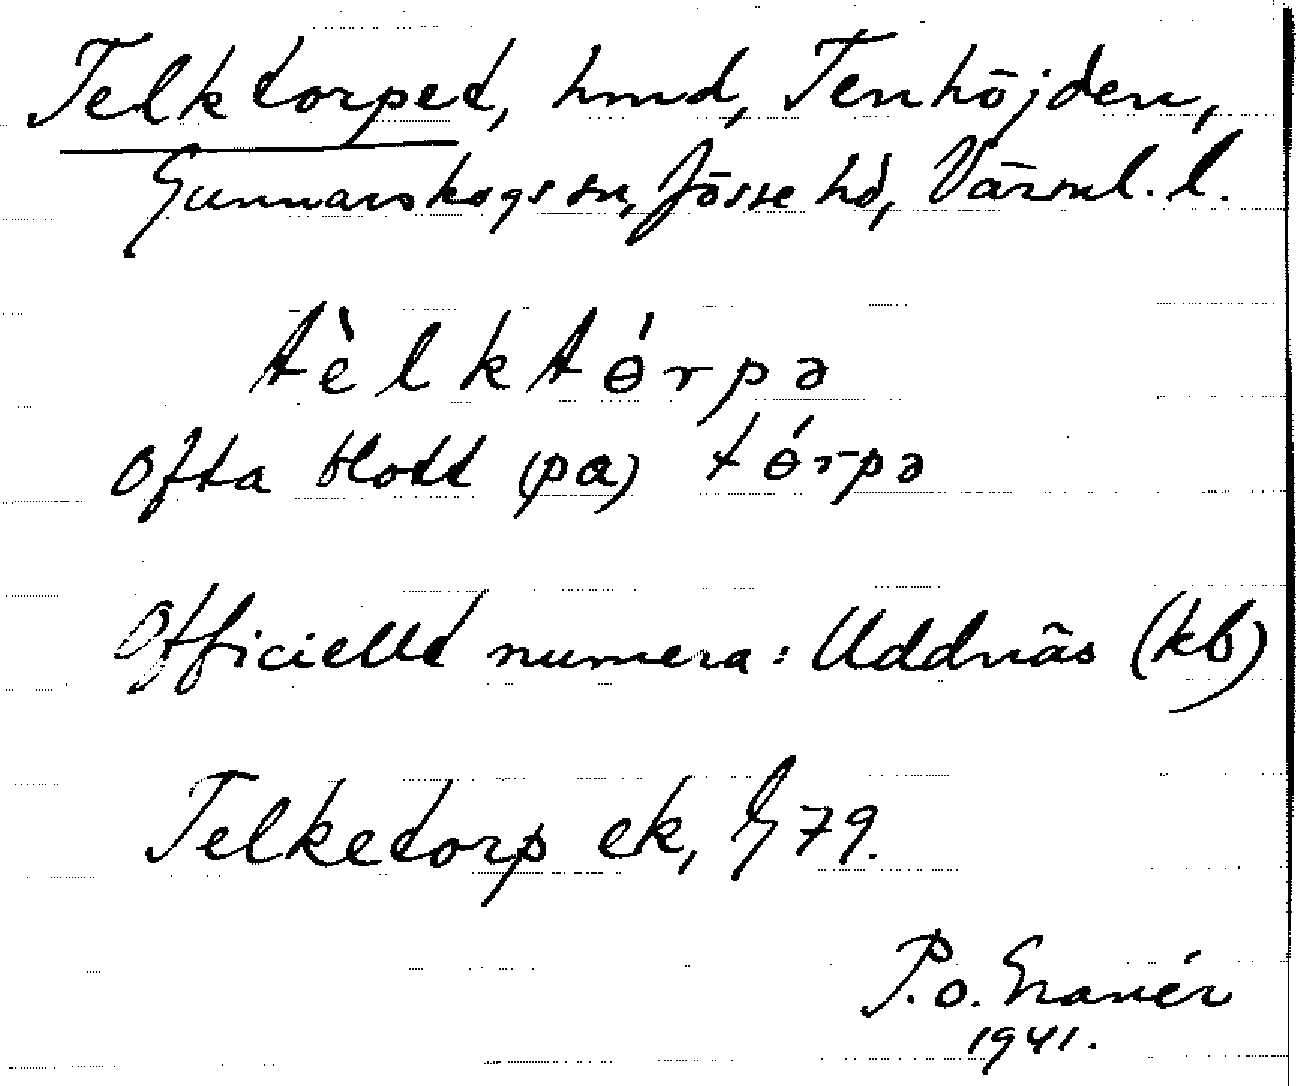 Telktorpet, hmd, Tenhöjden,
Gunnarskogs sn, Jösse hd, Värml. l.
tèlktɵ́rpə
Ofta blott (pa) tɵ́rpə
Officiellt numera: Uddnäs (kb)
Telketorp ek, G 79.
P.o. Granér
1941.